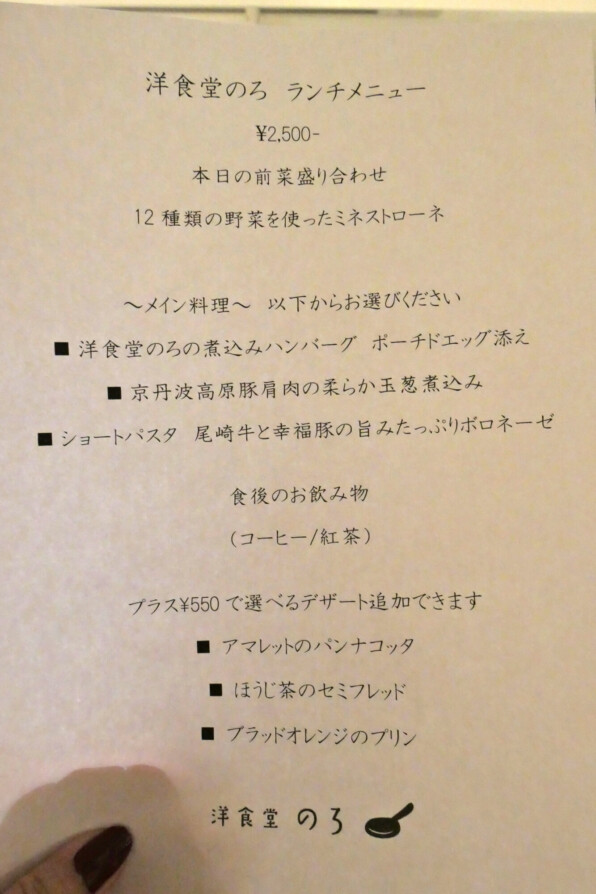 洋食堂のろ ランチメニュー
¥2,500-
本日の前菜盛り合わせ
12種類の野菜を使ったミネストローネ
～メイン料理～ 以下からお選びください
■ 洋食堂のろの煮込みハンバーグ ポーチドエッグ添え
■ 京丹波高原豚肩肉の柔らか玉葱煮込み
■ ショートパスタ 尾崎牛と幸福豚の旨みたっぷりボロネーゼ
食後のお飲み物
（コーヒー/紅茶）
プラス¥550で選べるデザート追加できます
■ アマレットのパンナコッタ
■ ほうじ茶のセミフレッド
■ ブラッドオレンジのプリン
洋食堂 のろ